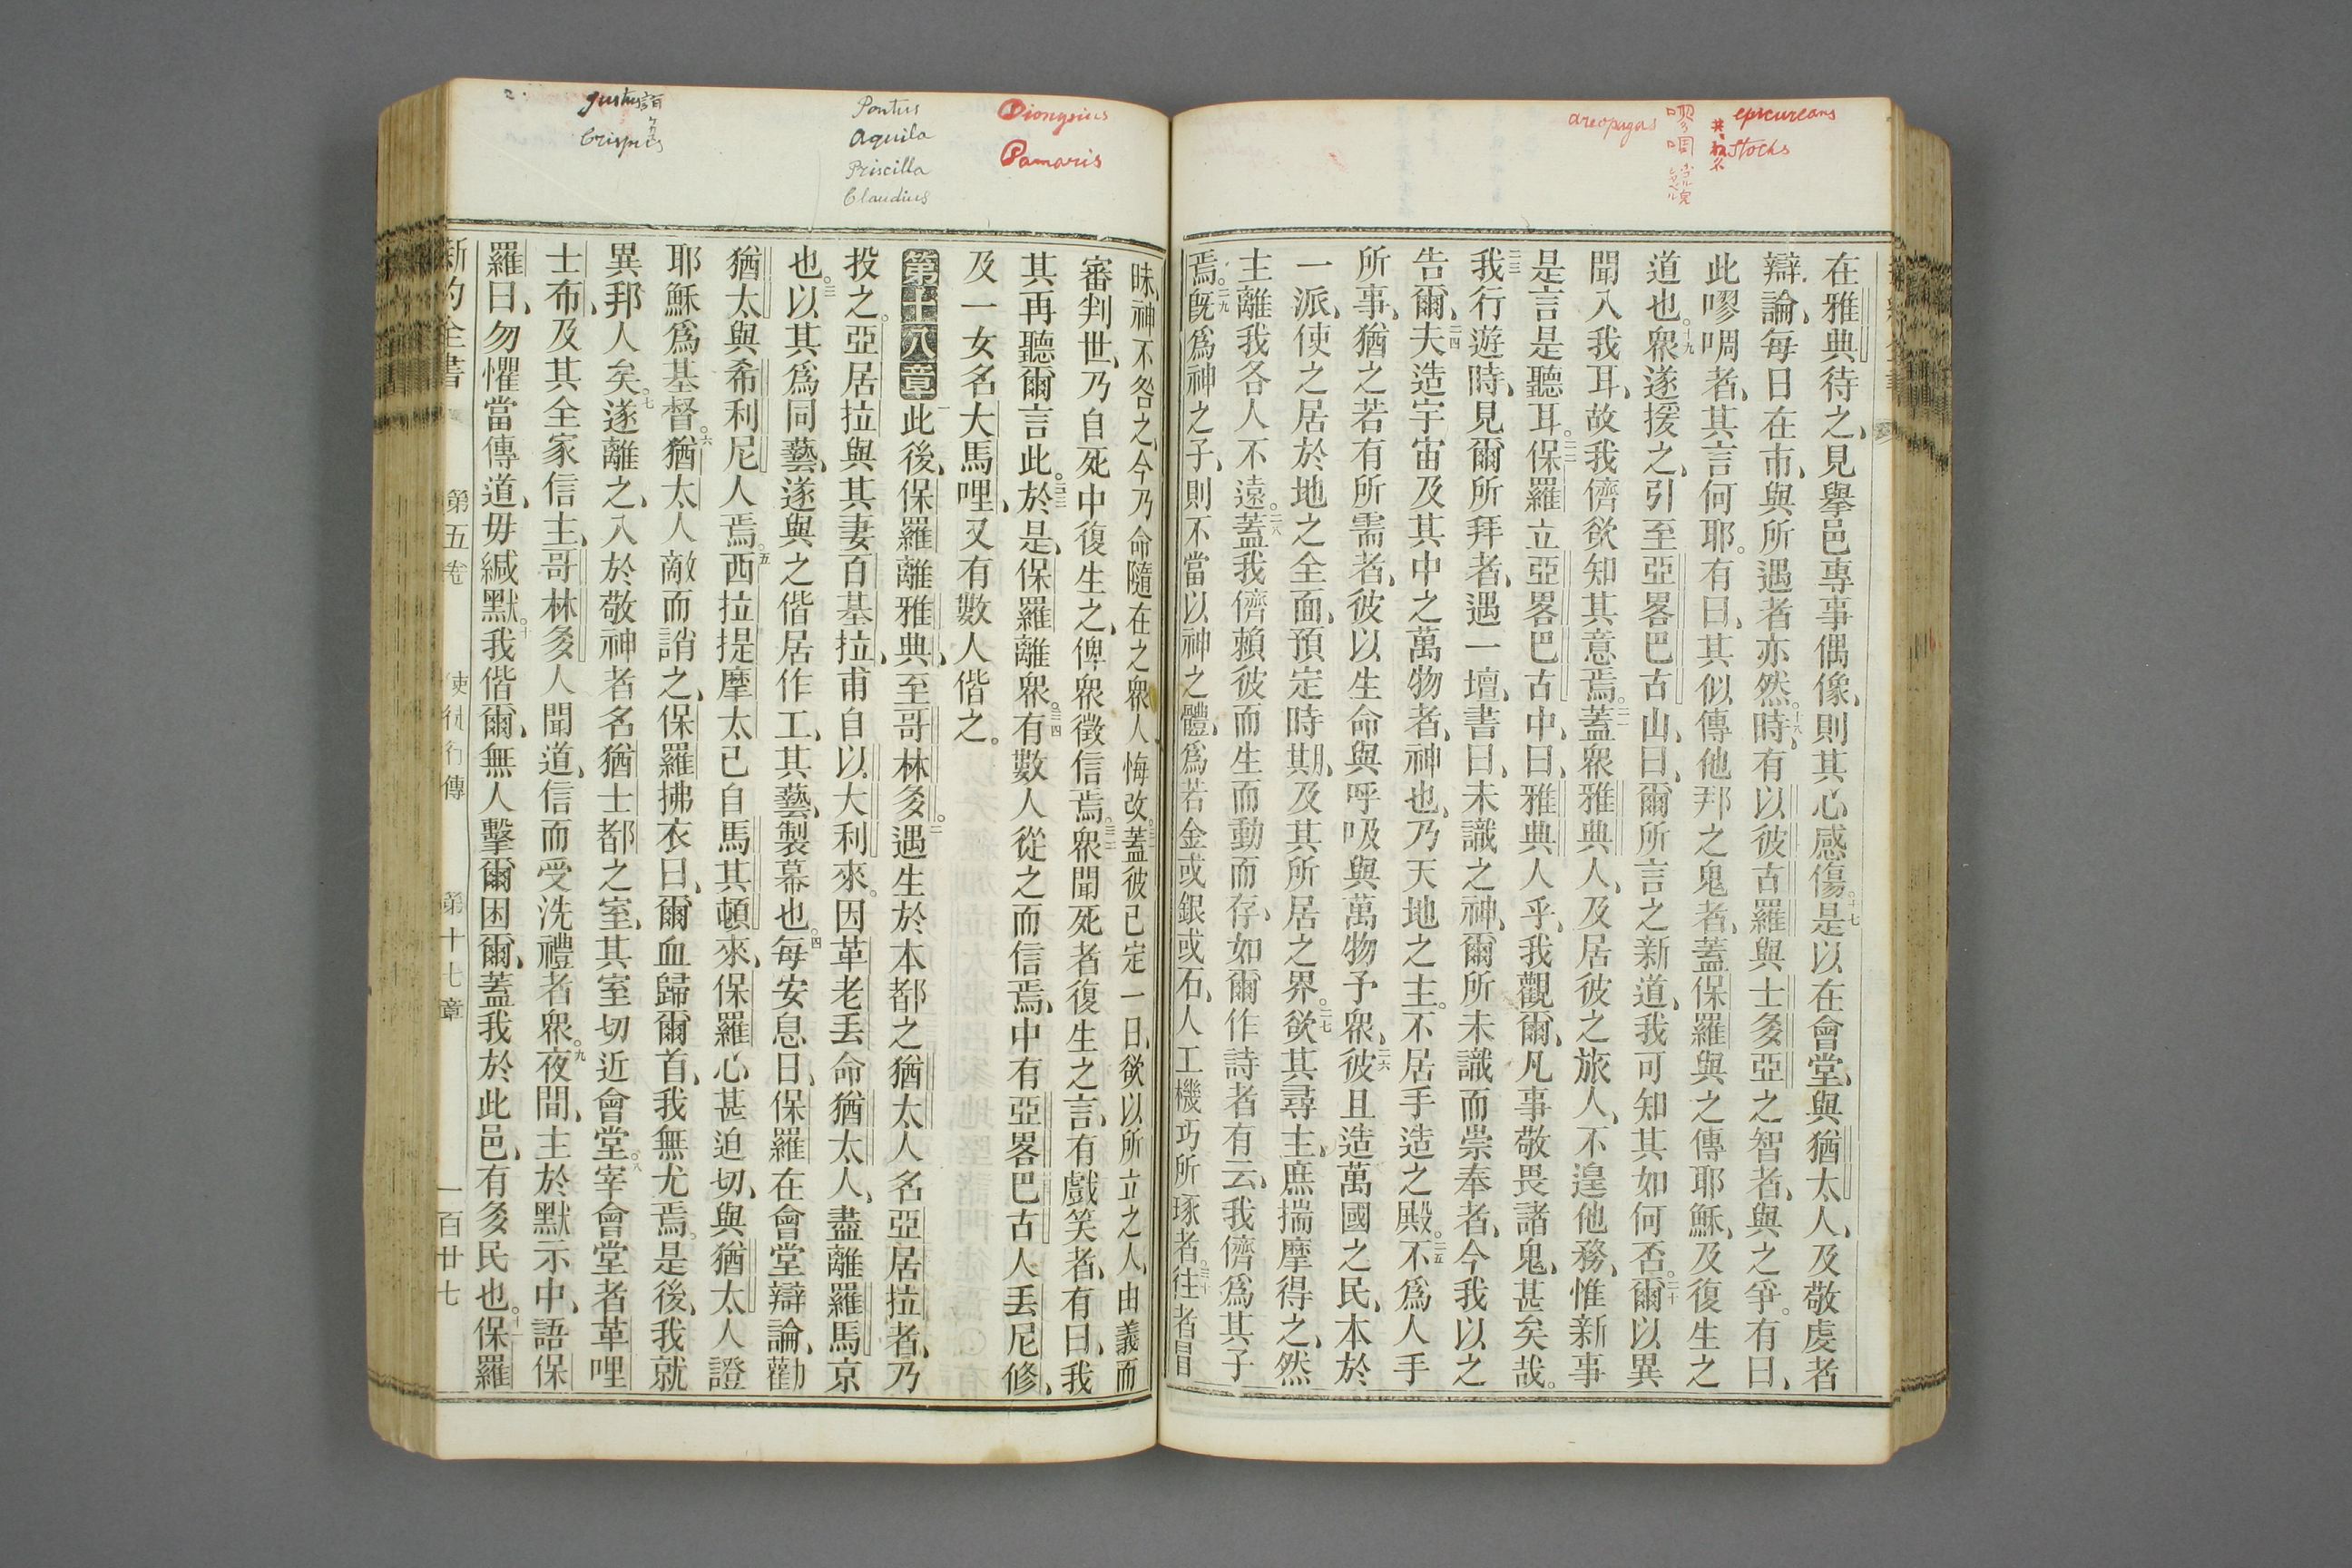 epicureans
Stocks
嘐啁
areopagus
在雅典待之、見擧邑專事偶像、則其心感傷。十七是以在會堂、與猶太人、及敬虔者
辯論、每日在市、與所遇者亦然。十八時、有以彼古羅與士多亞之智者、與之爭。有曰、
此嘐啁者、其言何耶。有曰、其似傳他邦之鬼者、蓋保羅與之傳耶穌、及復生之
道也。十九衆遂援之、引至亞畧巴古山、曰、爾所言之新道、我可知其如何否。二十爾以異
聞入我耳、故我儕欲知其意焉。二一蓋衆雅典人、及居彼之旅人、不遑他務、惟新事
是言是聽耳。二二保羅立亞畧巴古中、曰、雅典人乎、我觀爾、凡事敬畏諸鬼、甚矣哉。
二三我行遊時、見爾所拜者、遇一壇、書曰、未識之神、爾所未識而崇奉者、今我以之
告爾、二四夫造宇宙及其中之萬物者、神也、乃天地之主。不居手造之殿。二五不爲人手
所事、猶之若有所需者、彼以生命與呼吸與萬物予衆、二六彼且造萬國之民、本於
一派、使之居於地之全面、預定時期、及其所居之界。二七欲其尋主、庶揣摩得之、然
主離我各人不遠。二八蓋我儕賴彼而生而動而存、如爾作詩者有云、我儕爲其子
焉。二九旣爲神之子、則不當以神之體、爲若金或銀或石、人工機巧所琢者。三十往者冒
Dionysius
Pamaris
Pontus
Aquila
Priscilla
Claudius
Justus
Crispus
昧、神不咎之、今乃命隨在之衆人悔改。三一蓋彼已定一日、欲以所立之人、由義而
審判世、乃自死中復生之、俾衆徵信焉。三二衆聞死者復生之言、有戲笑者、有曰、我
其再聽爾言此。三三於是、保羅離衆。三四有數人從之而信焉、中有亞畧巴古人丟尼修、
及一女名大馬哩、又有數人偕之。
第十八章 一此後、保羅離雅典、至哥林多。二遇生於本都之猶太人名亞居拉者、乃
投之。亞居拉與其妻百基拉、甫自以大利來。因革老丟命猶太人、盡離羅馬京
也。三以其爲同藝、遂與之偕居作工、其藝、製幕也。四每安息日、保羅在會堂辯論、勸
猶太與希利尼人焉。五西拉提摩太已自馬其頓來、保羅心甚迫切、與猶太人證
耶穌爲基督。六猶太人敵而誚之、保羅拂衣曰、爾血歸爾首、我無尤焉。是後、我就
異邦人矣。七遂離之、入於敬神者名猶士都之室、其室切近會堂。八宰會堂者革哩
士布、及其全家信主、哥林多人聞道、信而受洗禮者衆。九夜間、主於默示中、語保
羅曰、勿懼當傳道、毋緘默。十我偕爾、無人擊爾困爾、蓋我於此邑、有多民也。十一保羅
新約全書 第五卷 使徒行傳 第十七章 一百廿七